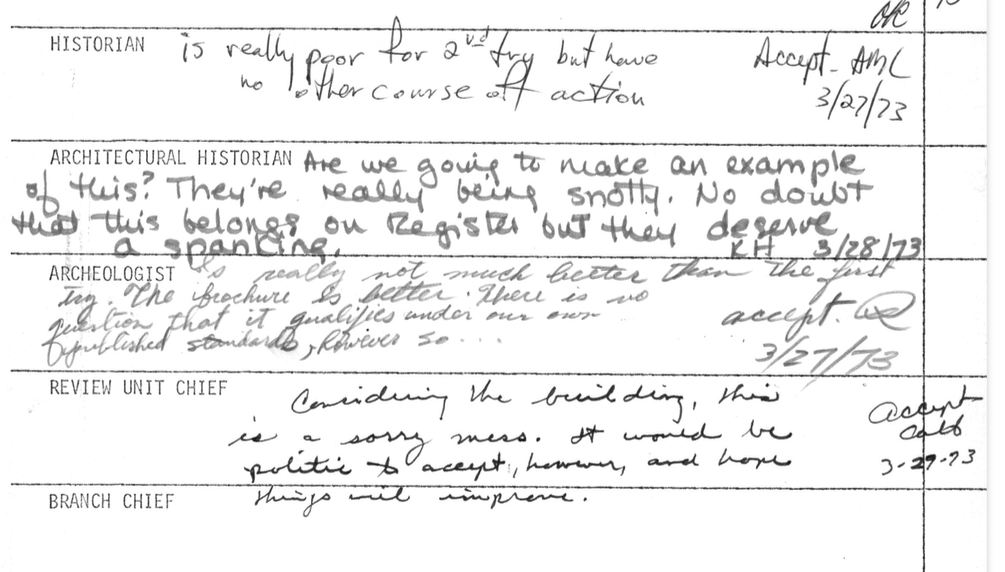 OK
HISTORIAN is really poor for 2nd try but have
no other course off action
Accept - AML
3/27/73
ARCHITECTURAL HISTORIAN Are we going to make an example
of this? They're really being snotty. No doubt
that this belongs on Register but they deserve
a spanking.
KH 3/28/73
ARCHEOLOGIST Is really not much better than the first
try. The brochure is better. There is no
question that it qualifies under our own
published standards, however so ...
accept.
3/27/73
REVIEW UNIT CHIEF Considering the building, this
is a sorry mess. It would be
politic to accept, however, and hope
things will improve.
accept
3-29-73
BRANCH CHIEF